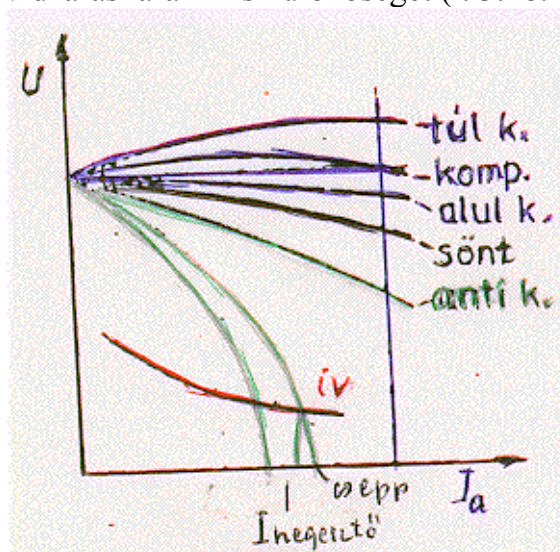 U
túl k.
komp.
alul k.
sönt
anti k.
ív
csepp
Ihegesztő
Ia